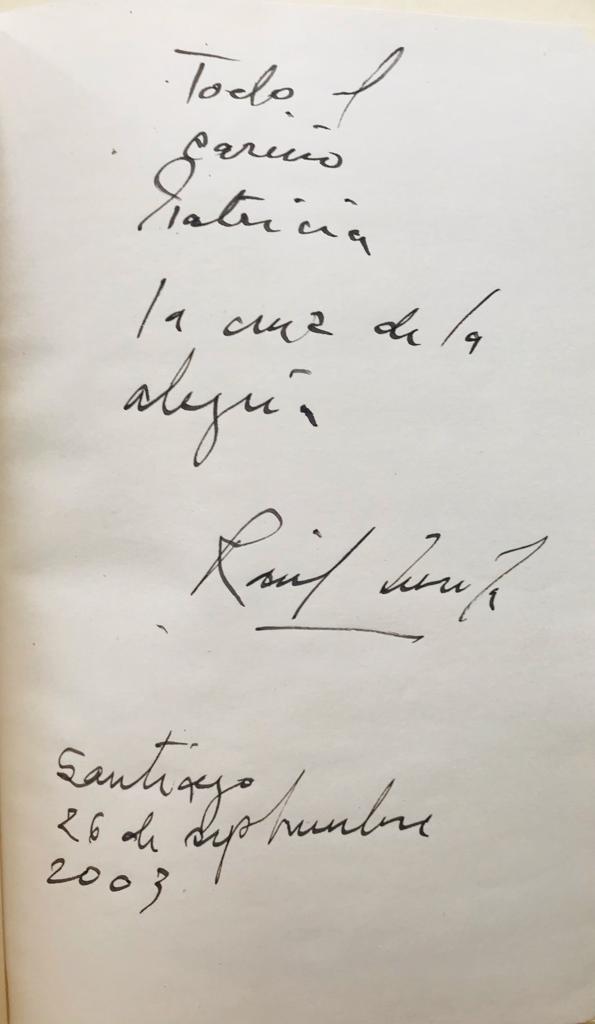 Todo el
cariño
Patricia
la cruz de la
alegría
Raúl Zurita
Santiago
26 de septiembre
2003